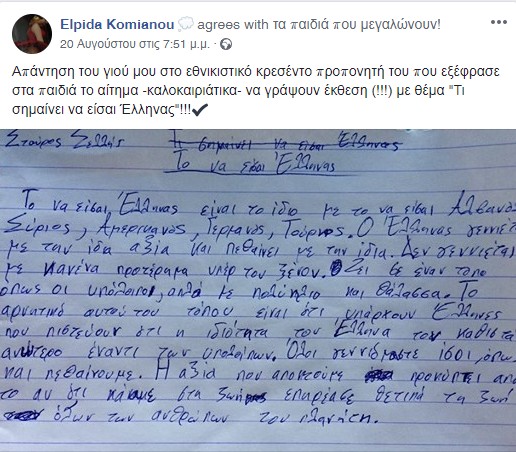 Elpida Komianou 💭 agrees with τα παιδιά που μεγαλώνουν!
20 Αυγούστου στις 7:51 μ.μ. ·
Απάντηση του γιού μου στο εθνικιστικό κρεσέντο προπονητή του που εξέφρασε
στα παιδιά το αίτημα -καλοκαιριάτικα- να γράψουν έκθεση (!!!) με θέμα "Τι
σημαίνει να είσαι Έλληνας"!!!✔
Σταύρος Σελλής Τι σημαίνει να είσαι Έλληνας
Το να είσαι Έλληνας
Το να είσαι Έλληνας είναι το ίδιο με το να είσαι Αλβανός
Σύριος, Αμερικανός, Γερμανός, Τούρκος. Ο Έλληνας γεννιέτ
με την ίδια αξία και πεθαίνει με την ίδια. Δεν γεννιέται
με κανένα προτέρημα υπέρ του ξένου. Ζει σε έναν τόπο
όπως οι υπόλοιποι, απλά με πολύ ήλιο και θάλασσα. Το
αρνητικό αυτού του τόπου είναι ότι υπάρχουν Έλληνες
που πιστεύουν ότι η ιδιότητα του Έλληνα τον καθιστά
ανώτερο έναντι των υπολοίπων. Όλοι γεννιόμαστε ίσοι, όπως
και πεθαίνουμε. Η αξία που αποκτούμε προκύπτει από
το αν ότι κάναμε στη ζωή μας επηρέασε θετικά τη ζωή
όλων των ανθρώπων του πλανήτη.